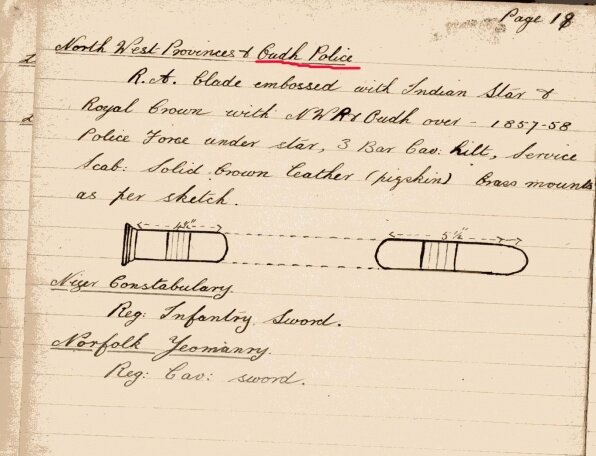 Page 19
North West Provinces & Oudh Police
R.A. blade embossed with Indian Star &
Royal Crown with NWP & Oudh over - 1857-58
Police Force under star, 3 Bar Cav: Hilt, Service
Scab: Solid brown leather (pigskin) brass mounts
as per sketch.
4¾" 5½"
Niger Constabulary
Reg: Infantry Sword.
Norfolk Yeomanry.
Reg: Cav: sword.